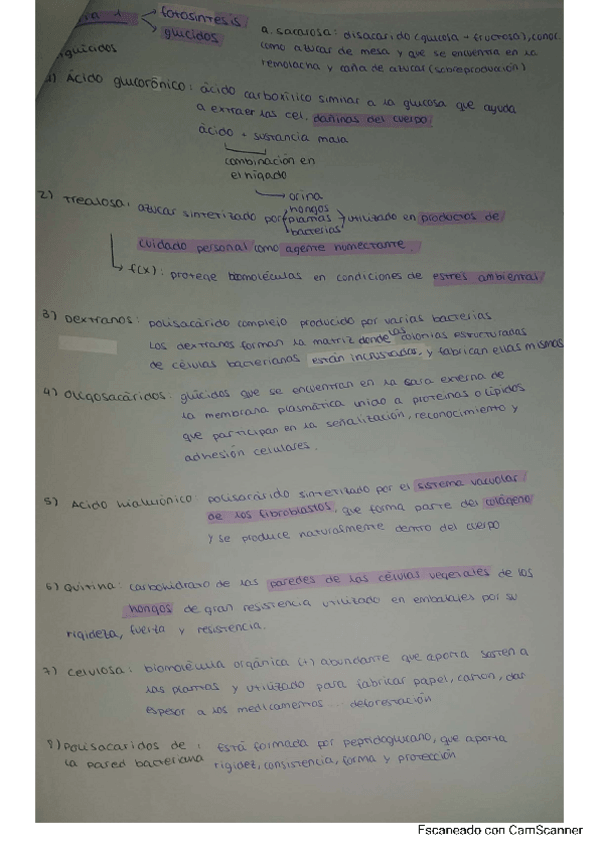 fotosíntesis
glúcidos
a. sacarosa: disacárido (glucosa + fructosa), conoc.
como azúcar de mesa y que se encuentra en la
remolacha y caña de azúcar (sobreproducción)
1) Ácido glucorónico: ácido carboxílico similar a la glucosa que ayuda
a extraer las cel. dañinas del cuerpo.
ácido + sustancia mala
combinación en
el hígado
orina
2) Trealosa: azúcar sintetizado por hongos plantas bacterias utilizado en productos de
cuidado personal como agente humectante.
f(x): protege biomoléculas en condiciones de estrés ambiental
3) Dextranos: polisacárido complejo producido por varias bacterias
los dextranos forman la matriz donde las colonias estructuradas
de células bacterianas están incrustadas, y fabrican ellas mismas
4) Oligosacáridos: glúcidos que se encuentran en la cara externa de
la membrana plasmática unido a proteínas o lípidos
que participan en la señalización, reconocimiento y
adhesión celulares.
5) Acido hialurónico polisacárido sintetizado por el sistema vacuolar
de los fibroblastos, que forma parte del colágeno
y se produce naturalmente dentro del cuerpo
6) Quitina: carbohidrato de las paredes de las células vegetales de los
hongos de gran resistencia utilizado en embalajes por su
rigideza, fuerza y resistencia.
7) celulosa: biomolécula orgánica (+) abundante que aporta sostén a
las plantas y utilizado para fabricar papel, carton, dar
espesor a los medicamentos ... deforestación
8) Polisacaridos de : Está formada por peptidoglucano, que aporta
la pared bacteriana rigidez, consistencia, forma y protección
Escaneado con CamScanner